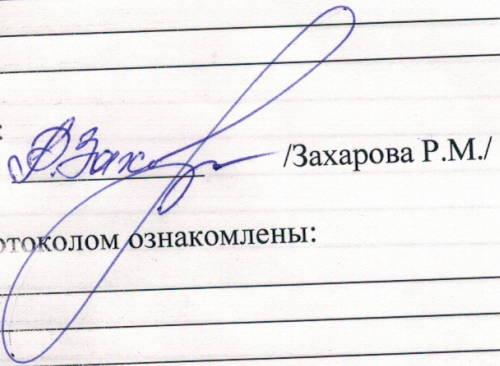 : Р.Захар /Захарова Р.М./
отоколом ознакомлены: